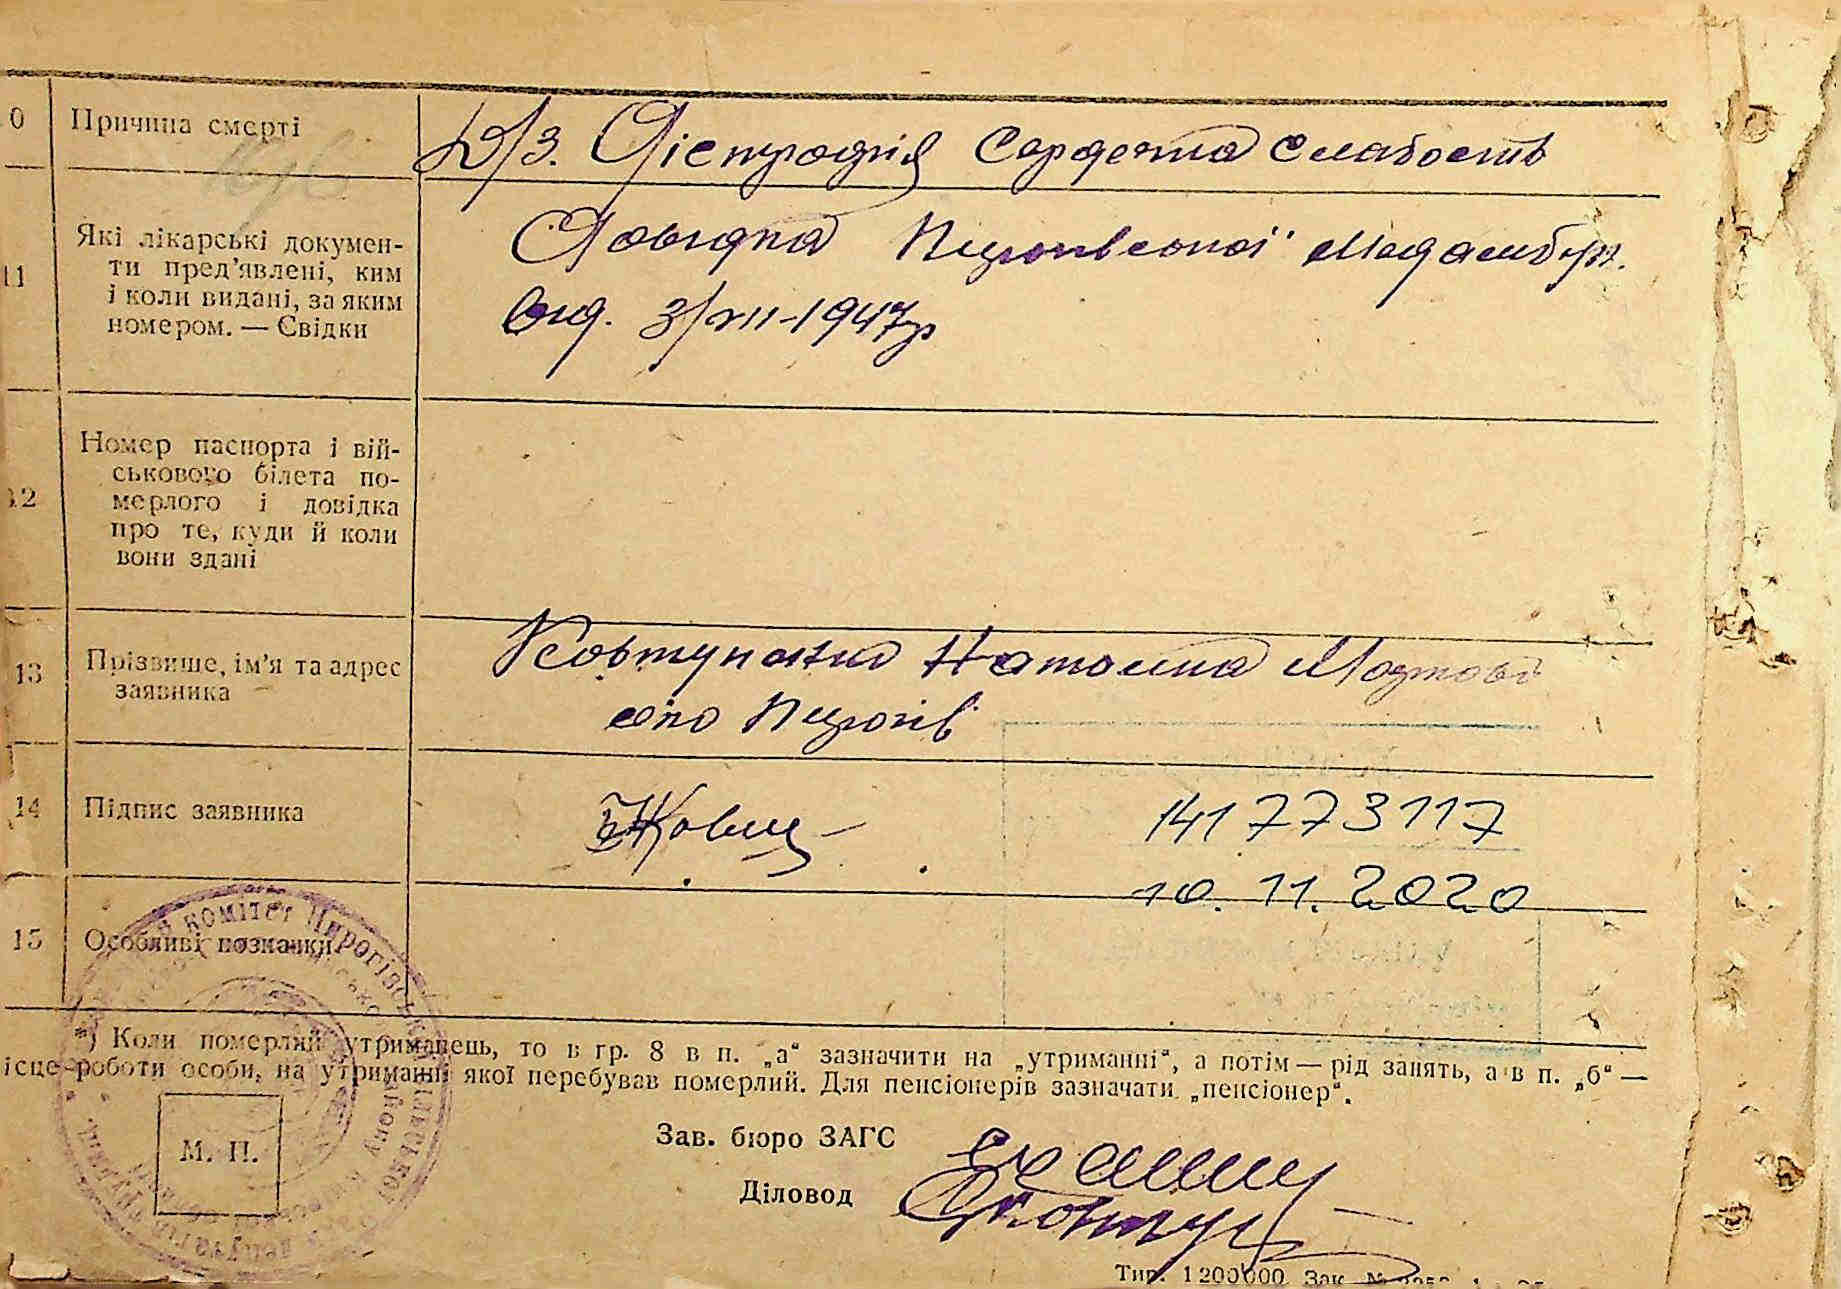 0 Причина смерті Д/З. Дістрофія Сердечна Слабость
11 Які лікарські докумен-
ти пред'явлені, ким
і коли видані, за яким
номером. — Свідки
Довідка Пирогівської Медамбул.
від. 3/XII-1947р
12 Номер паспорта і вій-
ськового білета по-
мерлого і довідка
про те, куди й коли
вони здані
13 Прізвище, ім'я та адрес
заявника
Наталия
село Пирогів
14 Підпис заявника
141773117
10.11.2020
15 Особливі позначки
комітет Пирогівської сільської
*) Коли померлий утриманець, то в гр. 8 в п. „а“ зазначити на „утриманні“, а потім — рід занять, а в п. „б“ —
ісце роботи особи, на утриманні якої перебував померлий. Для пенсіонерів зазначати „пенсіонер“.
М. П.
Зав. бюро ЗАГС
Діловод
Тип. 1200000 Зак. №